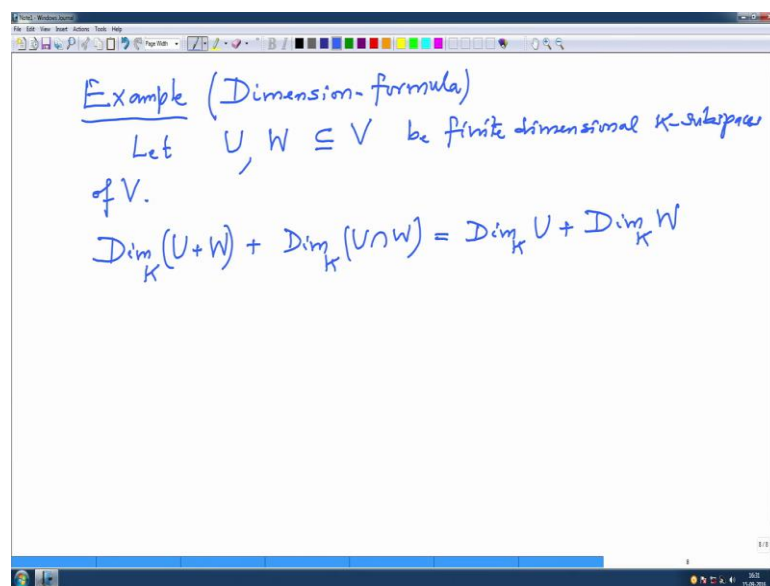 Note1 - Windows Journal
File Edit View Insert Actions Tools Help
Page Width
Example (Dimension-formula)
Let U, W ⊆ V be finite dimensional K-subspaces
of V.
Dim_K (U+W) + Dim_K (U∩W) = Dim_K U + Dim_K W
8/8
8
16:31
15-09-2016